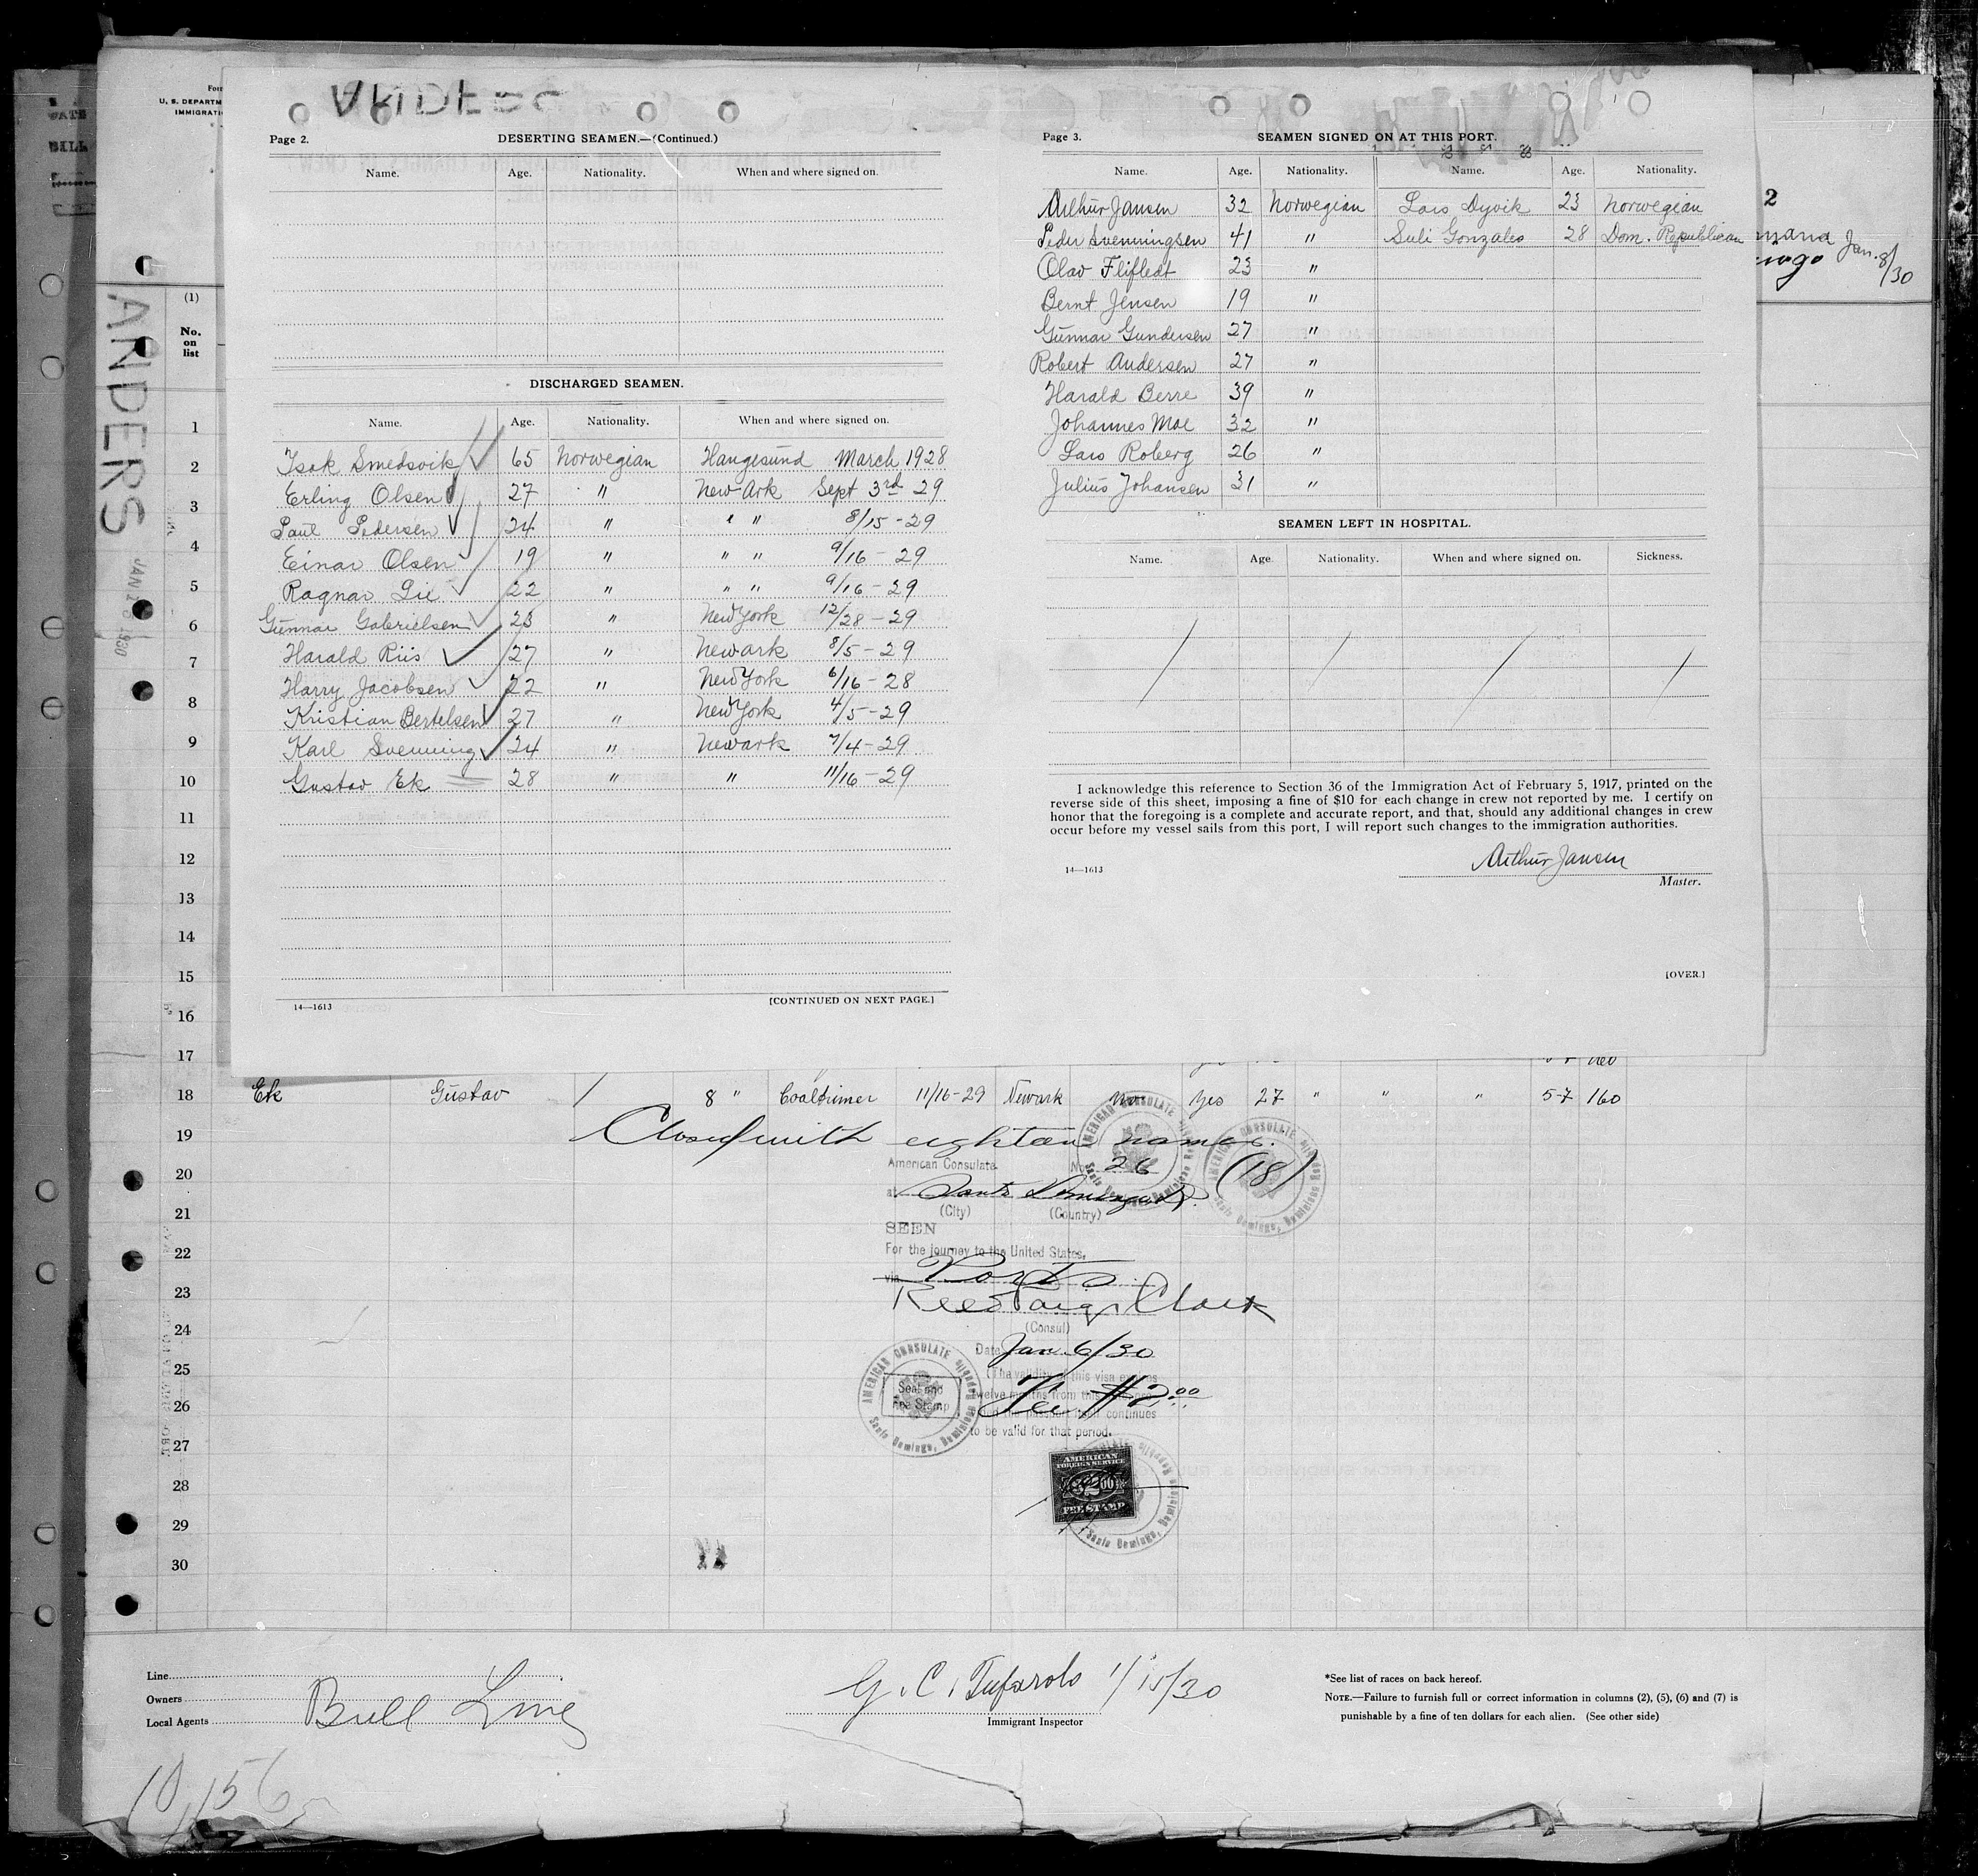 Page 2.
DESERTING SEAMEN.—(Continued.)
Name. Age. Nationality. When and where signed on.
DISCHARGED SEAMEN.
Name. Age. Nationality. When and where signed on.
Isak Smedsvik 65 Norwegian Haugesund March 1928
Erling Olsen 27 " New Ark Sept 3rd 29
Paul Pedersen 24 " " " 8/15-29
Einar Olsen 19 " " " 9/16-29
Ragnar Lie 22 " " " 9/16-29
Gunnar Gabrielsen 23 " New York 12/28-29
Harald Riis 27 " Newark 8/5-29
Harry Jacobsen 22 " New York 6/16-28
Kristian Bertelsen 27 " New York 4/5-29
Karl Svenning 24 " Newark 7/4-29
Gustav Ek 28 " " 11/16-29
14—1613
[CONTINUED ON NEXT PAGE.]
Page 3.
SEAMEN SIGNED ON AT THIS PORT.
Name. Age. Nationality. Name. Age. Nationality.
Arthur Jansen 32 Norwegian Lars Dyvik 23 Norwegian
Peder Svenningsen 41 " Suli Gonzales 28 Dom. Republican
Olav Flifledt 23 "
Bernt Jensen 19 "
Gunnar Gundersen 27 "
Robert Andersen 27 "
Harald Berre 39 "
Johannes Moe 32 "
Lars Roberg 26 "
Julius Johansen 31 "
SEAMEN LEFT IN HOSPITAL.
Name. Age. Nationality. When and where signed on. Sickness.
I acknowledge this reference to Section 36 of the Immigration Act of February 5, 1917, printed on the
reverse side of this sheet, imposing a fine of $10 for each change in crew not reported by me. I certify on
honor that the foregoing is a complete and accurate report, and that, should any additional changes in crew
occur before my vessel sails from this port, I will report such changes to the immigration authorities.
Arthur Jansen
Master.
14—1613
[OVER.]
U. S. DEPARTM
IMMIGRATI
2
Jan. 8/30
ANDERS
(1)
No.
on
list
1
2
3
4
5
6
7
8
9
10
11
12
13
14
15
16
17
18 Ek Gustav 8 " Coaltrimer 11/16-29 Newark no Yes 27 " " " 5-7 160
19 Closed with eighteen names.
20 American Consulate No. 26 (18)
at Santo Domingo D.R.
21 (City) (Country)
SEEN
22 For the journey to the United States,
via Ports
23 Reed Paige Clark
(Consul)
24 Date Jan. 6/30
25 (The validity of this visa expires
Seal and
Fee Stamp
twelve months from this
26 Fee $2.00
continues
27 to be valid for that period.
AMERICAN CONSULATE
Santo Domingo, Dominican Republic
AMERICAN
FOREIGN SERVICE
$2.00
FEE STAMP
28
29
30
Line
Owners
Local Agents
Bull Line
G. C. Tufarolo 1/15/30
Immigrant Inspector
*See list of races on back hereof.
NOTE.—Failure to furnish full or correct information in columns (2), (5), (6) and (7) is
punishable by a fine of ten dollars for each alien. (See other side)